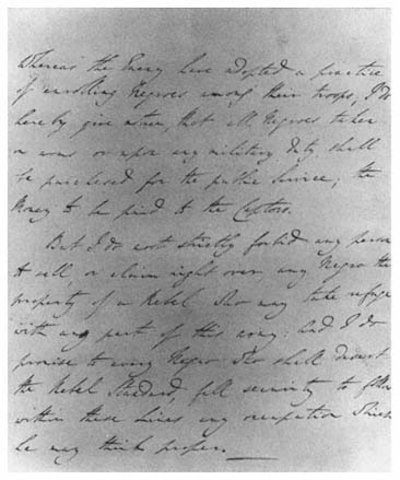 Whereas the Enemy have adopted a practice
of enrolling Negroes among their troops, I do
hereby give notice, that all Negroes taken
in arms or upon any military duty shall
be purchased for the public Service; the
Money to be paid to the Captors.
But I do most strictly forbid any person
to sell or claim right over any Negro the
property of a Rebel who may take refuge
with any part of this army: And I do
promise to every Negro who shall desert
the Rebel Standard, full security to follow
within these Lines any occupation which
he may think proper.